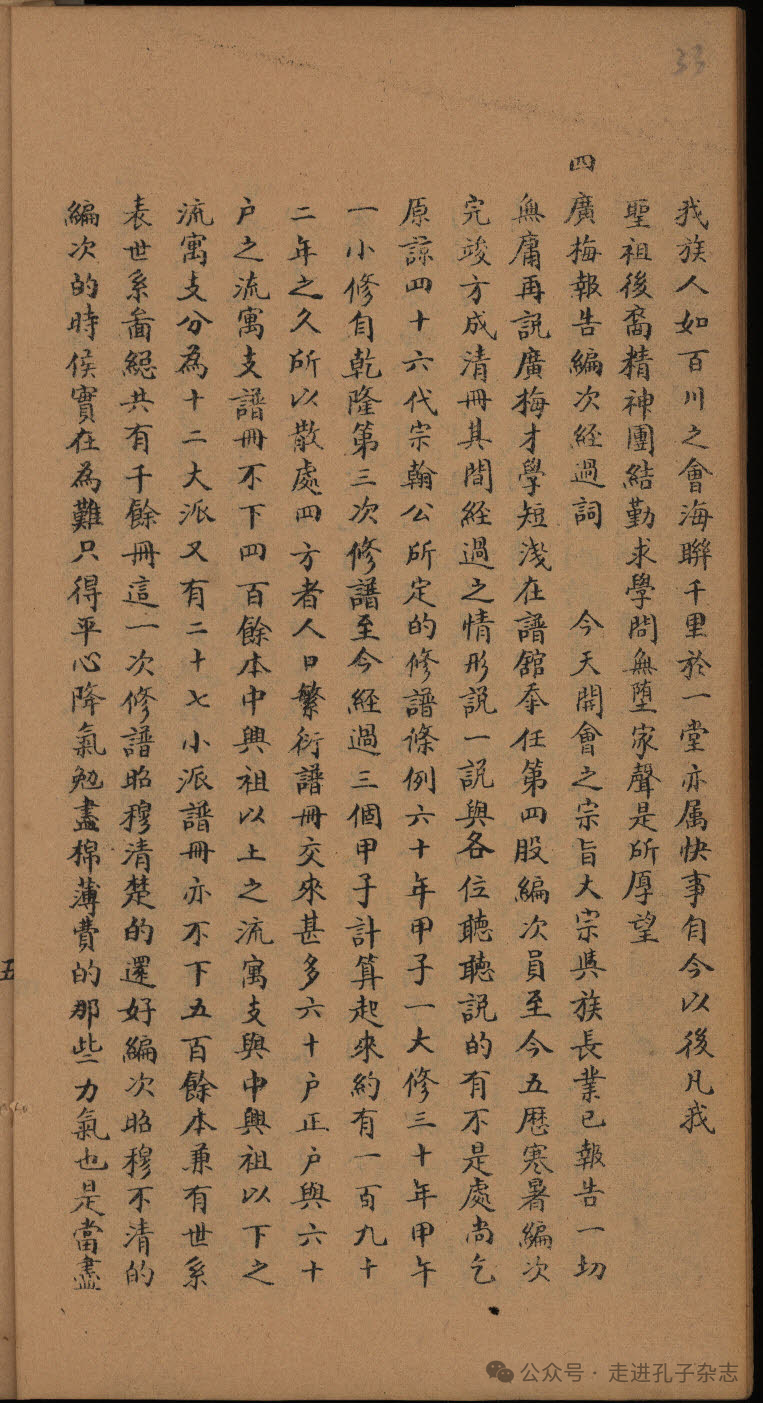 33
我族人如百川之會海聯千里於一堂亦属快事自今以後凡我
聖祖後裔精神團結勤求學問無墮家聲是所厚望
四廣梅報告編次經過詞　今天開會之宗旨大宗與族長業已報告一切
無庸再說廣梅才學短淺在譜舘奉任第四股編次員至今五歷寒暑編次
完竣方成清冊其間經過之情形説一説與各位聽聽説的有不是處尚乞
原諒四十六代宗翰公所定的修譜條例六十年甲子一大修三十年甲午
一小修自乾隆第三次修譜至今經過三個甲子計算起來約有一百九十
二年之久所以散處四方者人口繁衍譜冊交來甚多六十户正户與六十
户之流寓支譜冊不下四百餘本中興祖以上之流寓支與中興祖以下之
流寓支分為十二大派又有二十七小派譜冊亦不下五百餘本兼有世系
表世系啚總共有千餘冊這一次修譜昭穆清楚的還好編次昭穆不清的
編次的時候實在為難只得平心降氣勉盡棉薄費的那些力氣也是當盡
五
公众号·走进孔子杂志